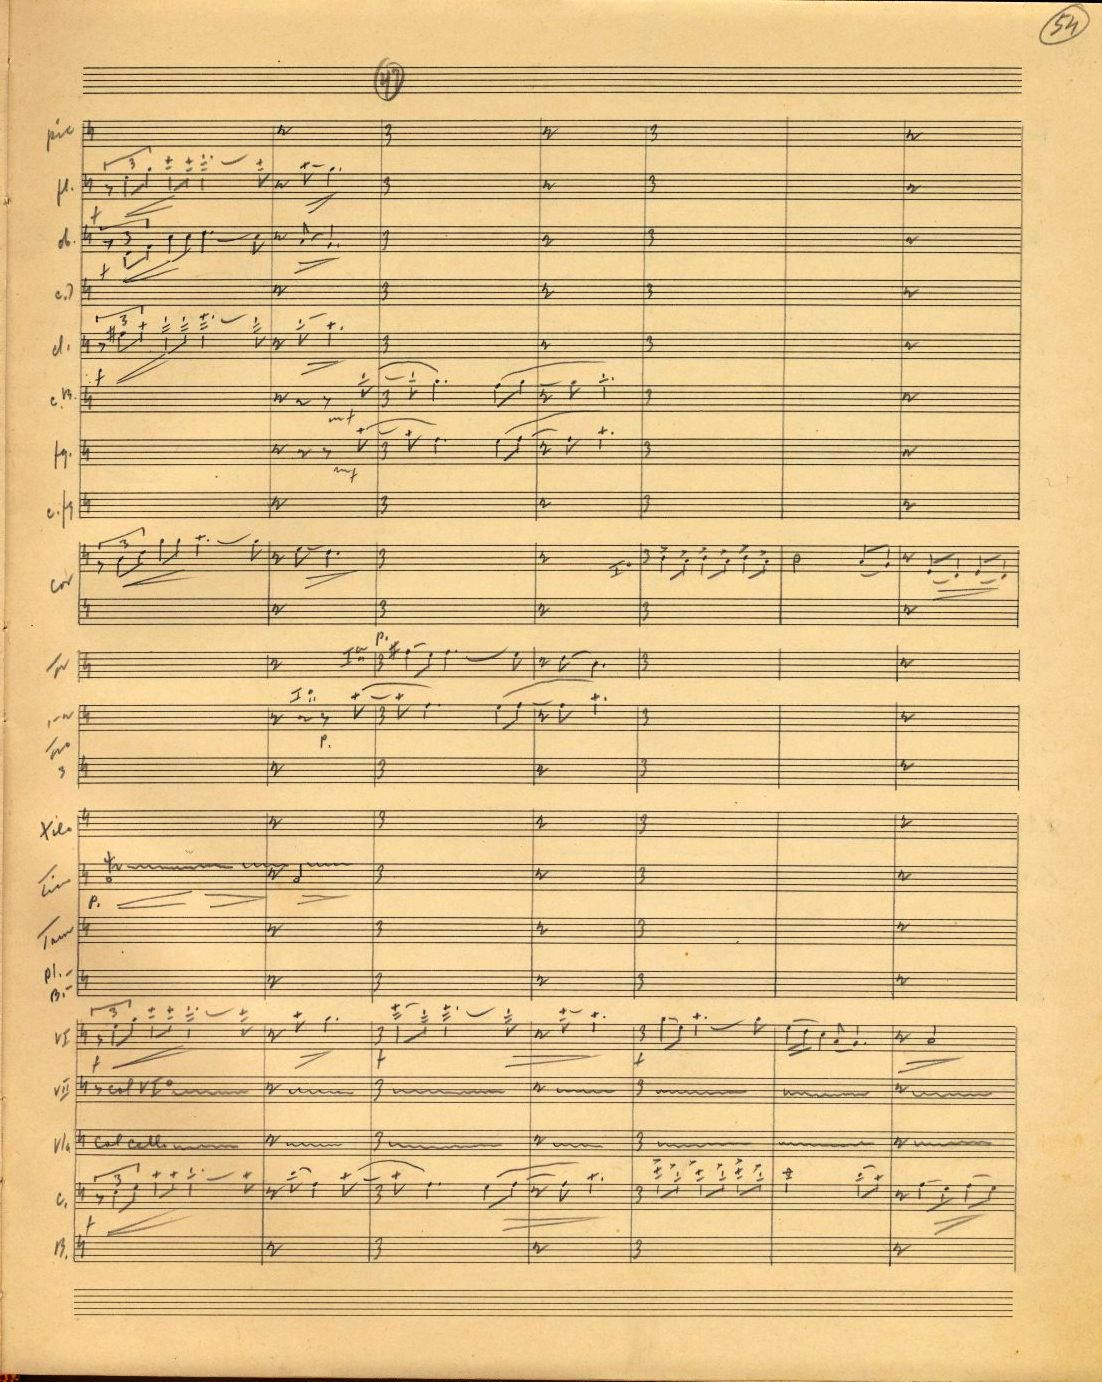 54
47
pic
fl.
f
ob.
f
c.i
cl.
f
c.B.
mf
fg.
mf
c.fg
Cor
Iº
Iª
p.
Tr
Iº
p.
Trno
3
Xilo
Tim
p.
Tam
pl.-
B.-
VI
f f f
VII col VIº
Vla col cello
c.
f
B.